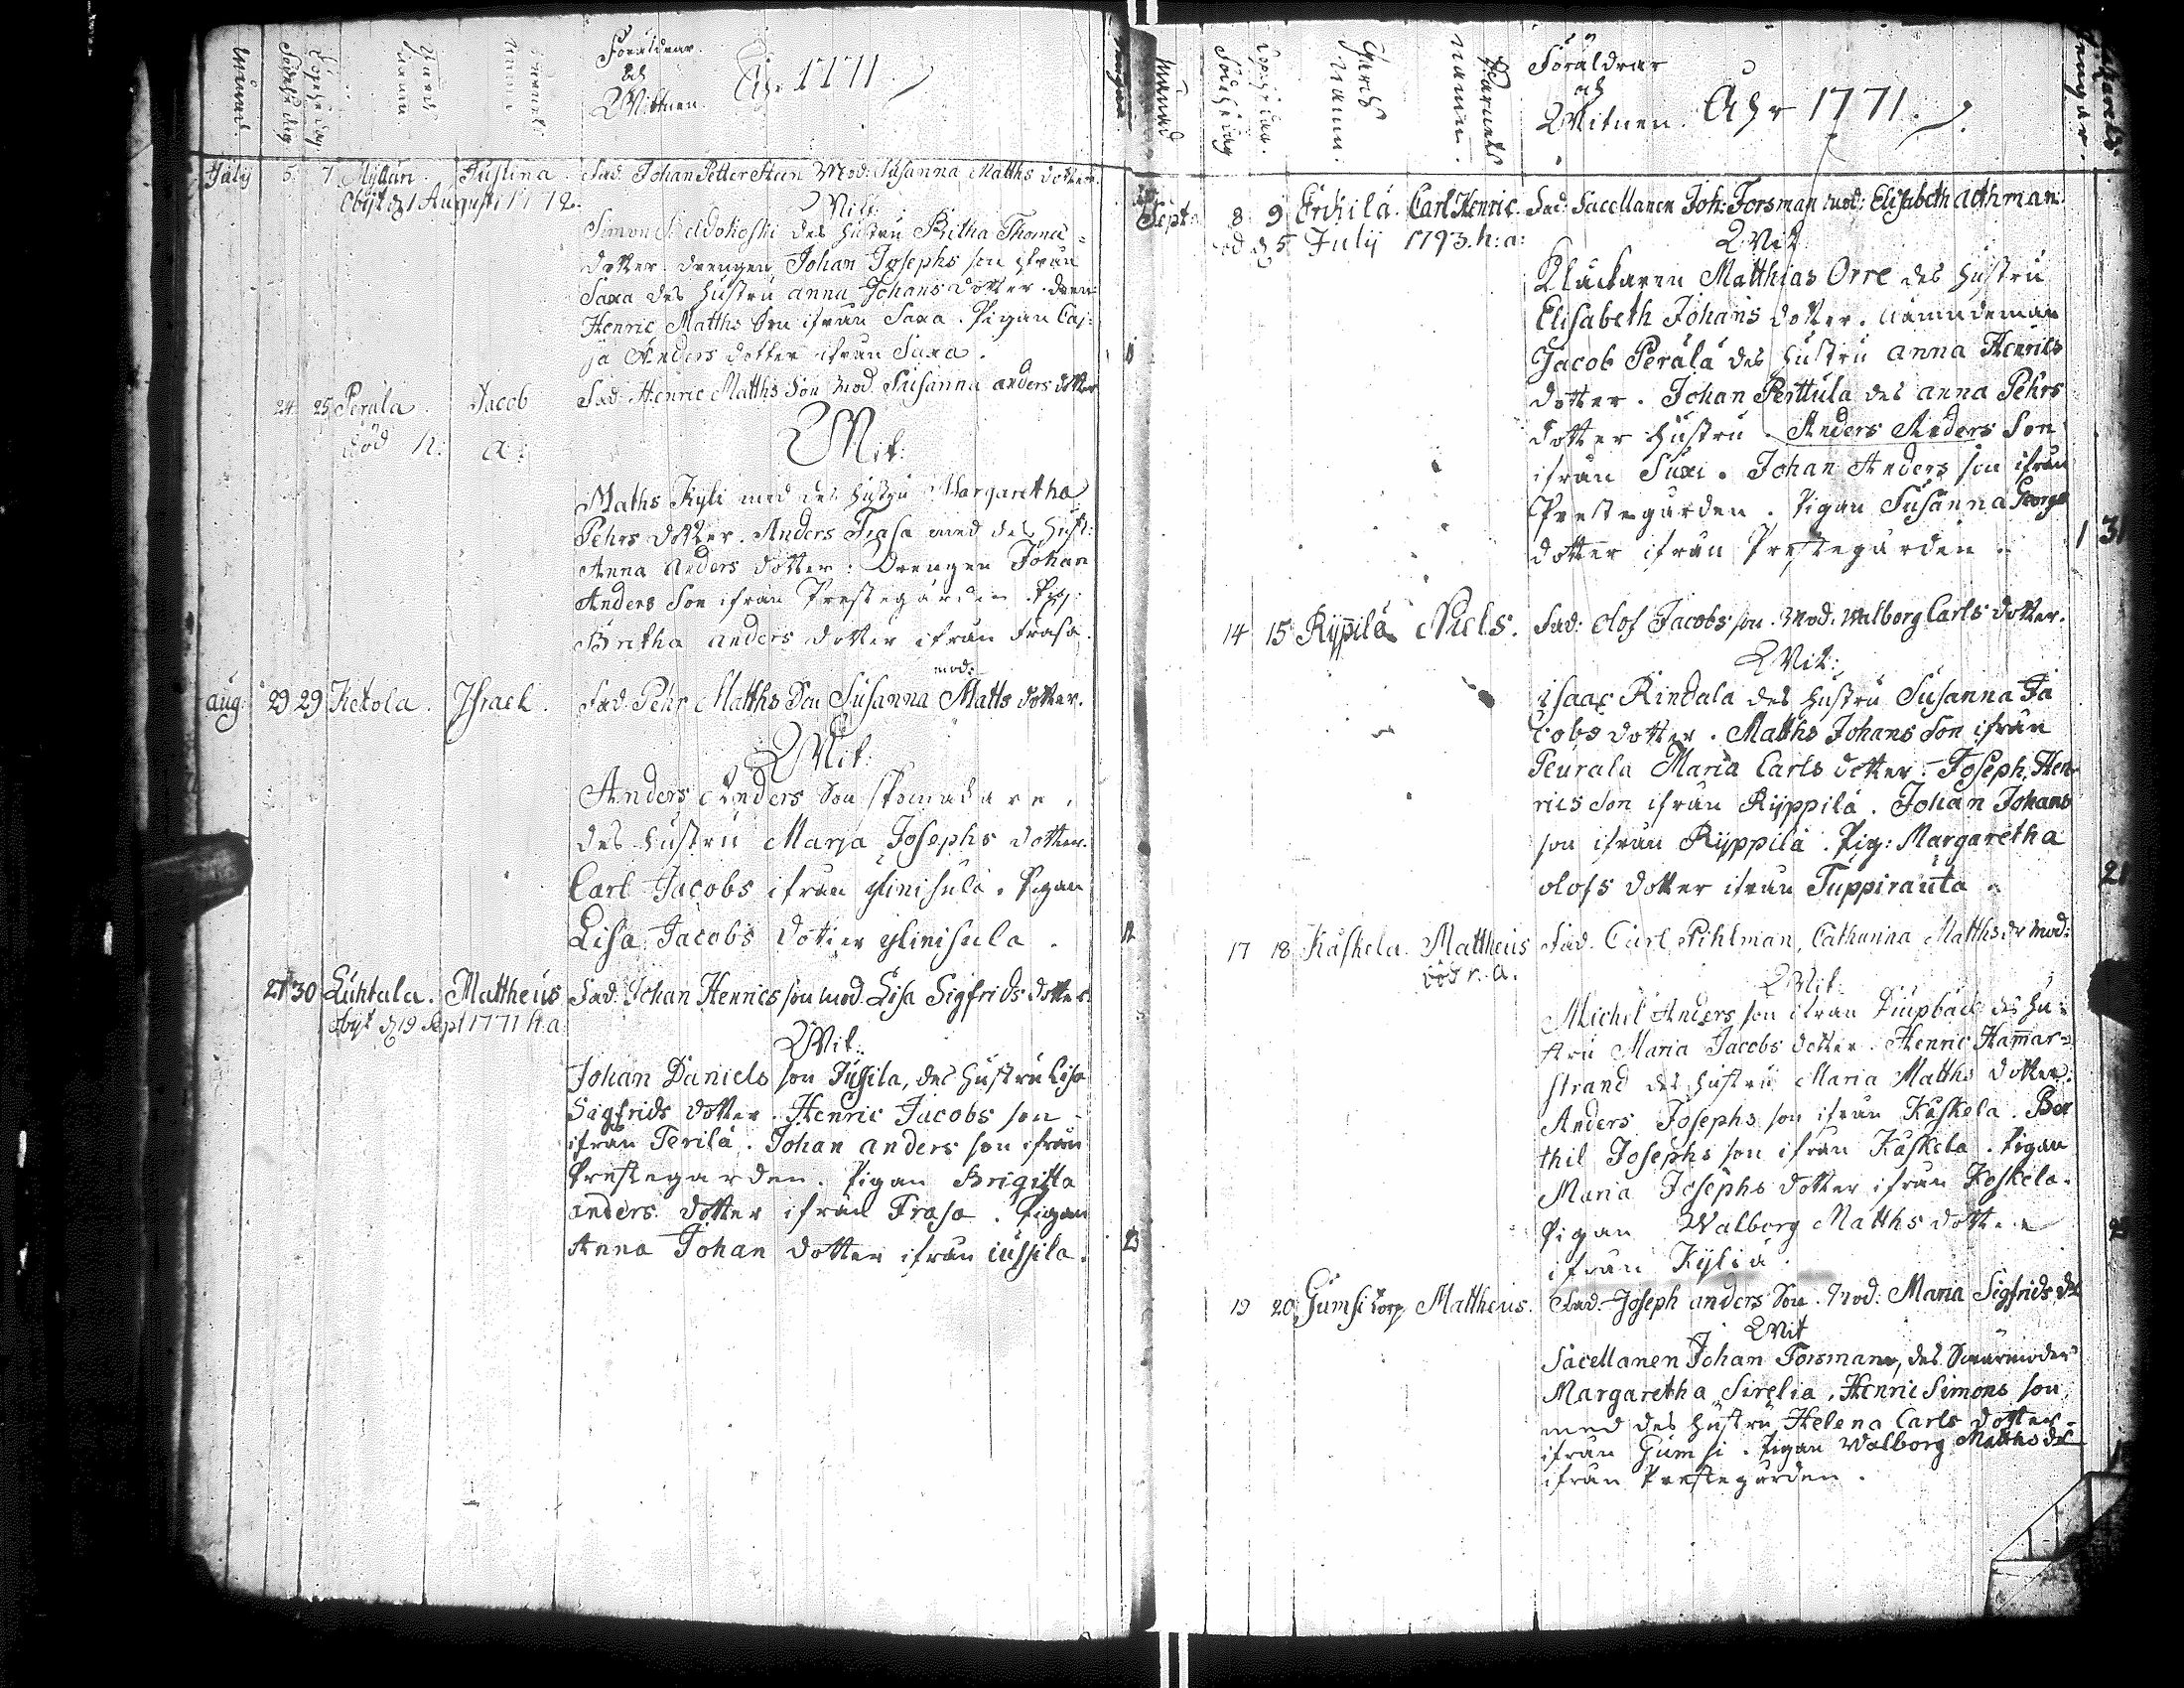 Månad.
Födelse dag
Föräldrar
och
Wittnen.
Åhr 1771
July 5. 7 Justina. Fad. Johan Petter Mod: Susanna Matths dotter.
obijt d 1 Augusti 1772.
Witt:
Simon des hustru Britha Thomæ
dotter. drengen Johan Josephs son ifrån
Saxa des hustru anna Johans dotter. dren:
Henric Matths Son ifrån Saxa. Pigan Caj-
ja Anders dotter ifrån Saxa.
24 25 Perala. Jacob Fad. Henric Matths Son Mod Susanna anders dotter
död h: a:
Wit:
Maths Kyli med des hustru Margaretha
Pehrs dotter. Anders Frasa med des hust:
Anna anders dotter: Drengen Johan
Anders Son ifrån Prestegården. Pig:
Britha anders dotter ifrån Frasa.
mod:
aug: 29 29 Ketola. Israel. Fad. Pehr Matths Son Susanna Matts dotter.
Wit:
Anders Anders Son skomakare,
des hustru Marja Josephs dotter.
Carl Jacobs ifrån ylinisula. Pigan
Lisa Jacobs dotter ylinisula.
27 30 Luhtala. Mattheus Fad. Johan Henrics son mod. Lisa Sigfrids dotter
obijt d 19 Sept 1771 h.a.
Wit:
Johan Daniels son Jussila, des hustru Lisa
Sigfrids dotter. Henric Jacobs son
ifrån Terilä. Johan anders son ifrån
Prestegården. Pigan Brigitta
anders dotter ifrån Frasa. Pigan
Anna Johan dotter ifrån iussila.
Månad
Födelse dag
Gårds
Namn.
Barnets
Namn.
Föräldrar
och
Witnen.
Åhr 1771.
Sept: 8 9 Erkilä. Carl Henric. Fad: Sacellanen Joh: Forsman mod: Elisabeth acthman:
död d 5 July 1793. h: a:
Wit:
Kläckaren Matthias Orre des hustru
Elisabeth Johans dotter. nämndeman
Jacob Perälä des hustru anna Henrics
dotter. Johan Perttula des anna Pehrs
dotter hustru. Anders Anders Son
ifrån Saxi. Johan Anders son ifrån
Prestegården. Pigan Susanna Georgs
dotter ifrån Prestegården.
1 31
14 15 Ryppilä Niels. Fad: Olof Jacobs son. Mod. Walborg Carls dotter.
Wit:
isaac Rindala des hustru Susanna Ja
cobs dotter. Matths Johans Son ifrån
Peurala Maria Carls dotter. Joseph Hen-
rics Son ifrån Ryppilä. Johan Johans
son ifrån Ryppilä. Pig: Margaretha
olofs dotter ifrån Tuppirauta.
21
17 18 Kaskela. Mattheus Fad. Carl Pihlman, Catharina Matths dr mod:
död h. a.
Wit:
Michel Anders son ifrån des hu-
stru Maria Jacobs dotter. Henric Hamar-
strand des hustru Maria Matths dotter.
Anders Josephs son ifrån Kaskela. Ber
thil Josephs son ifrån Kaskela. Pigan
Maria Josephs dotter ifrån Koskela.
Pigan Walborg Matths dotter
ifrån Kyliä.
19 20 Gumsi torp Mattheus. Fad: Joseph anders Son. Mod: Maria Sigfrids dr
Wit
Sacellanen Johan Forsman, des Swärmoder
Margaretha Sirelia, Henric Simons son,
med des hustru Helena Carls dotter
ifrån Gumsi. Pigan Walborg Matths dr
ifrån Prestegården.